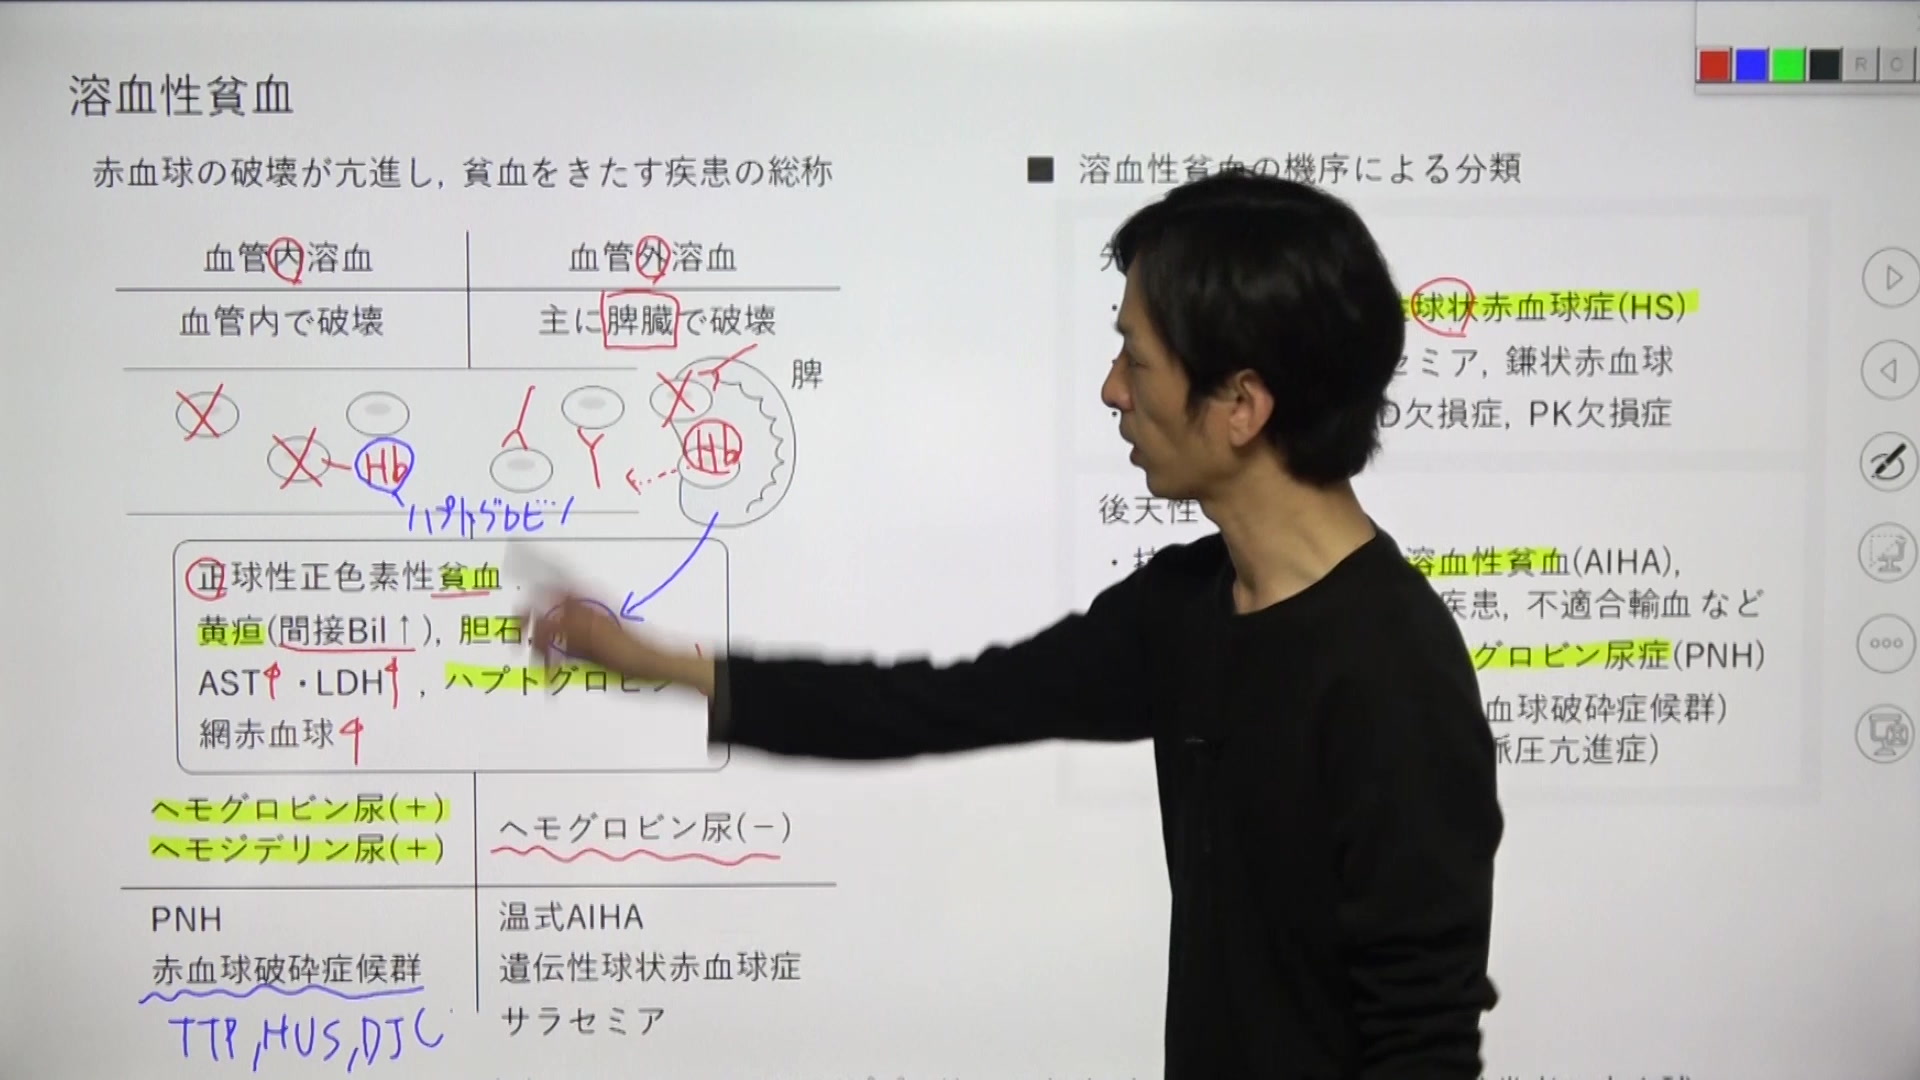 溶血性貧血
赤血球の破壊が亢進し, 貧血をきたす疾患の総称
血管内溶血
血管外溶血
血管内で破壊
主に脾臓で破壊
脾
Hb
Hb
ハプトグロビン
正球性正色素性貧血
黄疸(間接Bil↑), 胆石,
AST↑・LDH↑, ハプトグロビン
網赤血球↑
ヘモグロビン尿(+)
ヘモジデリン尿(+)
ヘモグロビン尿(-)
PNH
赤血球破砕症候群
TTP, HUS, DIC
温式AIHA
遺伝性球状赤血球症
サラセミア
■ 溶血性貧血の機序による分類
球状赤血球症(HS)
セミア, 鎌状赤血球
D欠損症, PK欠損症
後天性
溶血性貧血(AIHA),
疾患, 不適合輸血 など
グロビン尿症(PNH)
血球破砕症候群)
脈圧亢進症)
R